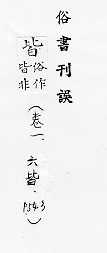 俗書刊誤
皆俗作
皆非
(卷一.六皆.P54.3)